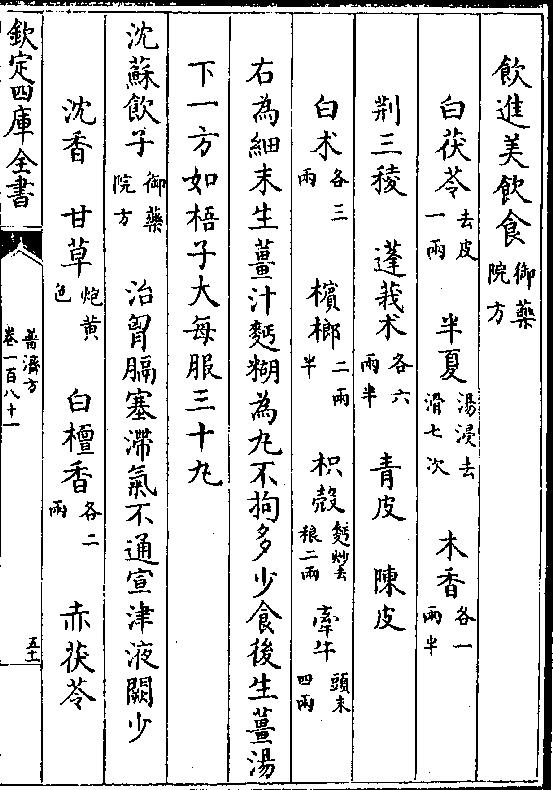 飲進美飲食御藥院方
白茯苓去皮一兩 半夏湯浸去滑七次 木香各一兩半
荆三稜 蓬莪术各六兩半 青皮 陳皮
白术各三兩 檳榔二兩半 枳殻麪炒去穣二兩 牽牛頭末四兩
右為細末生薑汁麪糊為丸不拘多少食後生薑湯
下一方如梧子大每服三十丸
沈蘇飲子御藥院方 治胷膈塞滯氣不通宣津液闕少
沈香 甘草炮黄色 白檀香各二兩 赤茯苓
欽定四庫全書
普濟方
卷一百八十一
五十一